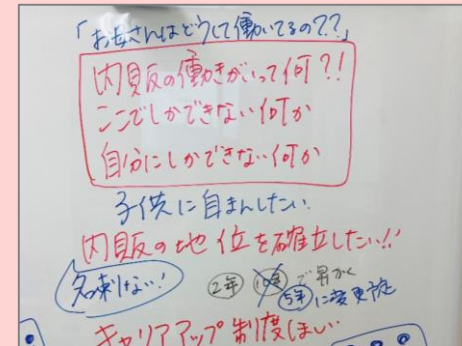 「お母さんはどうして働いてるの??」
内販の働きがいって何?!
ここでしかできない何か
自分にしかできない何か
子供に自まんしたい
内販の地位を確立したい!!
名刺はない!
2年 で昇かく
5年に変更
キャリアアップ制度ほしい